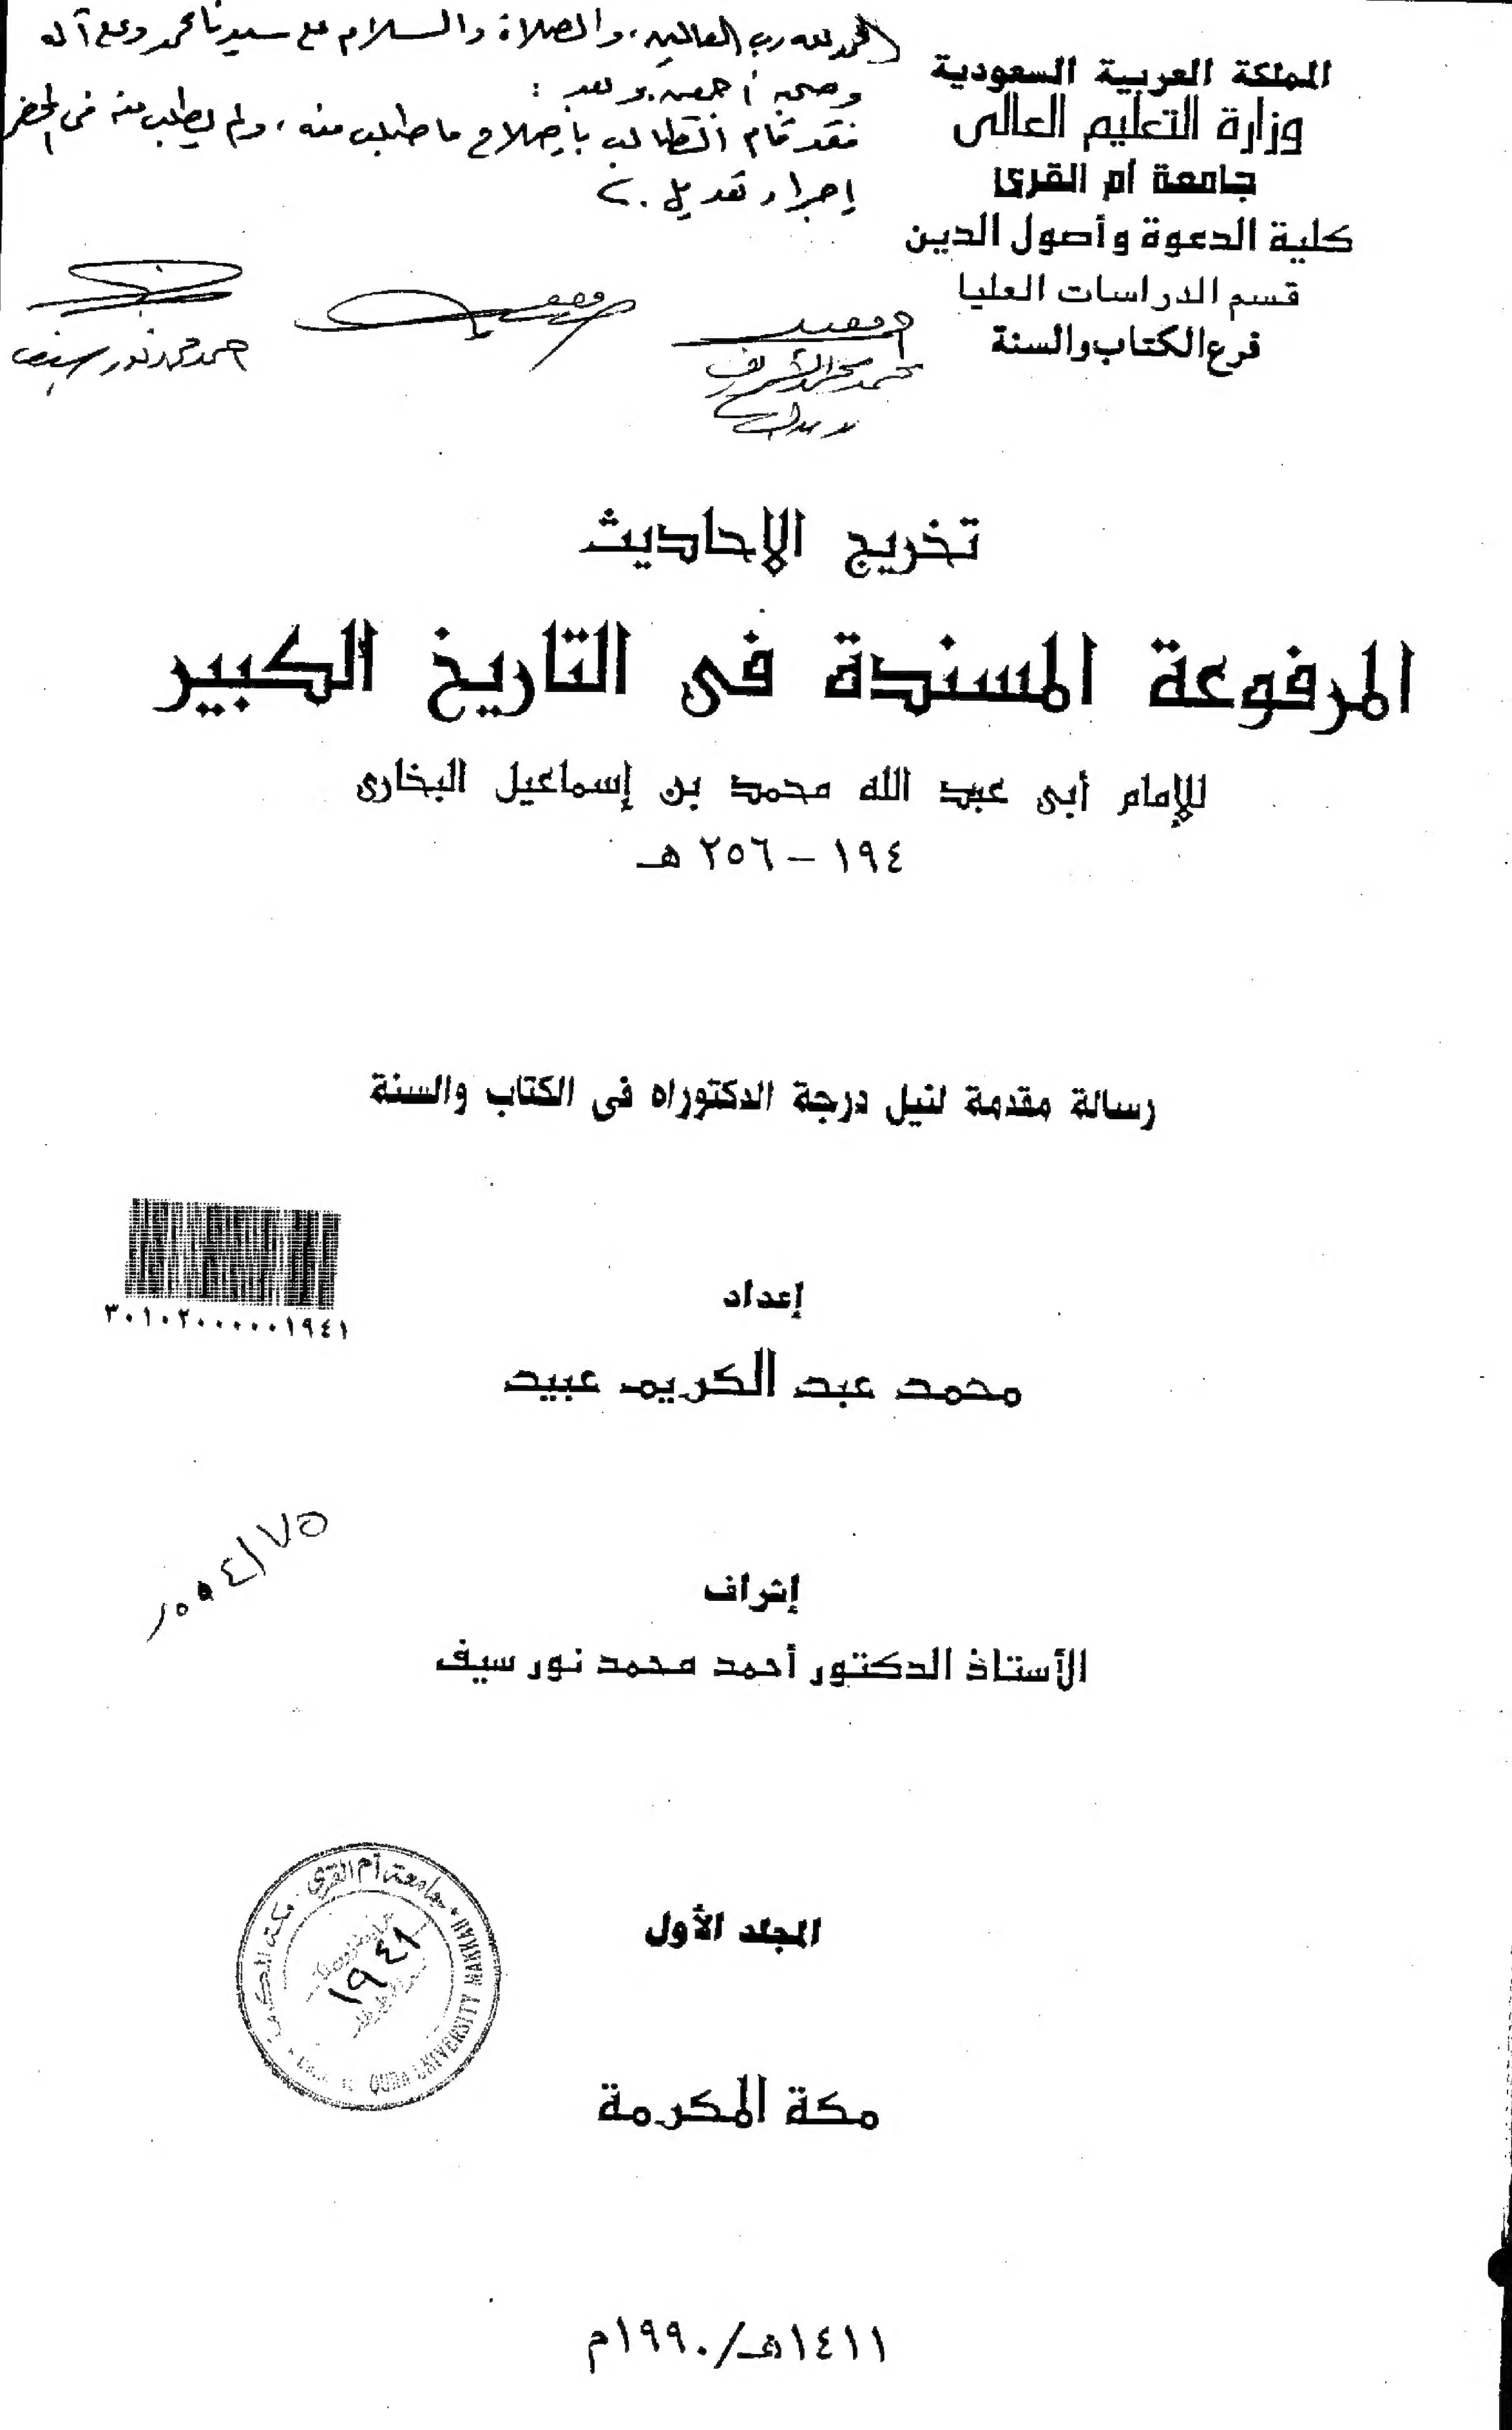 المملكة العربية السعودية
وزارة التعليم العالى
جامعة أم القرى
كلية الدعوة وأصول الدين
قسم الدراسات العليا
فرع الكتاب والسنة
الحمد لله رب العالمين، والصلاة والسلام على سيدنا محمد وعلى آله
وصحبه أجمعين. وبعد :
فقد قام الطالب بإصلاح ما طلب منه، ولم يطلب منه في المحضر
إجراء تعديل.
أحمد محمد نور سيف
تخريج الاحاديث
المرفوعة المسندة فى التاريخ الكبير
للإمام أبى عبد الله محمد بن إسماعيل البخارى
١٩٤ – ٢٥٦ هـ
رسالة مقدمة لنيل درجة الدكتوراه فى الكتاب والسنة
٣٠١٠٢٠٠٠٠٠١٩٤١
إعداد
محمد عبد الكريم عبيد
إشراف
الأستاذ الدكتور أحمد محمد نور سيف
جامعة أم القرى . مكة المكرمة
١٩٤١
QURA UNIVERSITY MAKKAH
المجلد الأول
مكة المكرمة
١٤١١هـ/١٩٩٠م